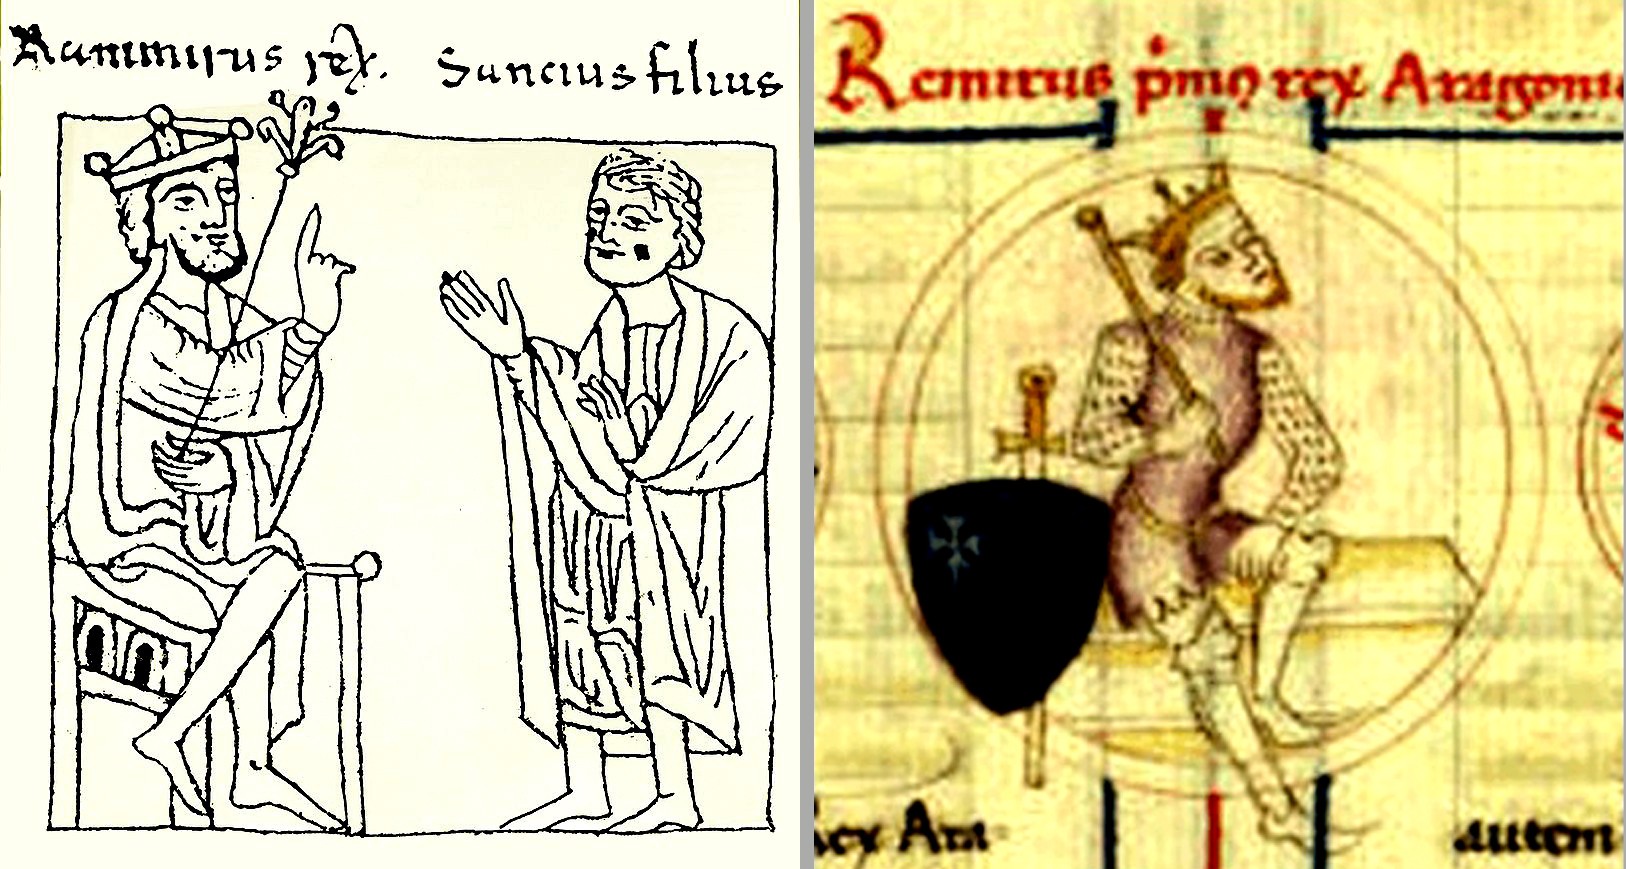 Rammirus rex. Sancius filius
Remirus p̄mꝯ rex Aragonie
rex Ara
autem